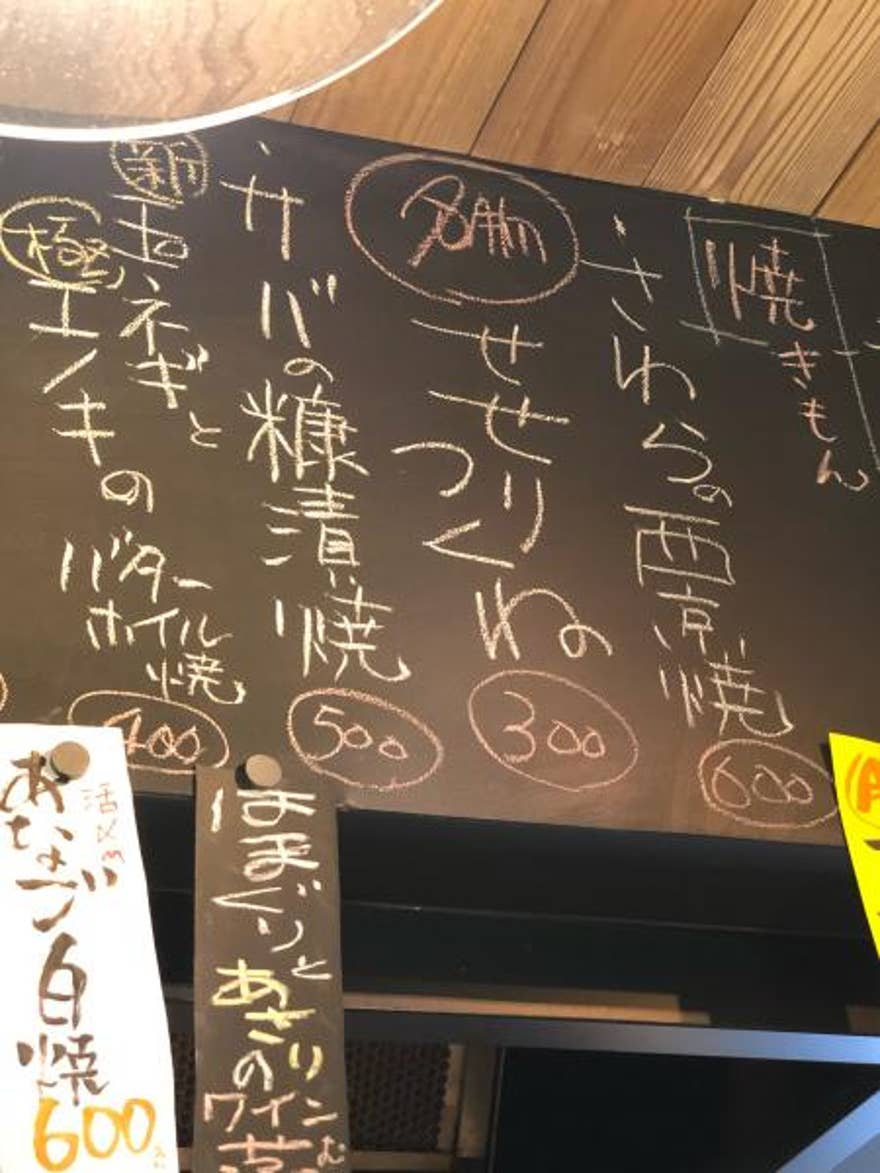 焼きもん
・さわらの西京焼
600
名物
せせりの
つくね
300
・サバの糠漬焼
500
新玉ネギと
極エノキの
バターホイル焼
400
活〆
あなご白焼
600
はまぐりと
あさりの
ワイン